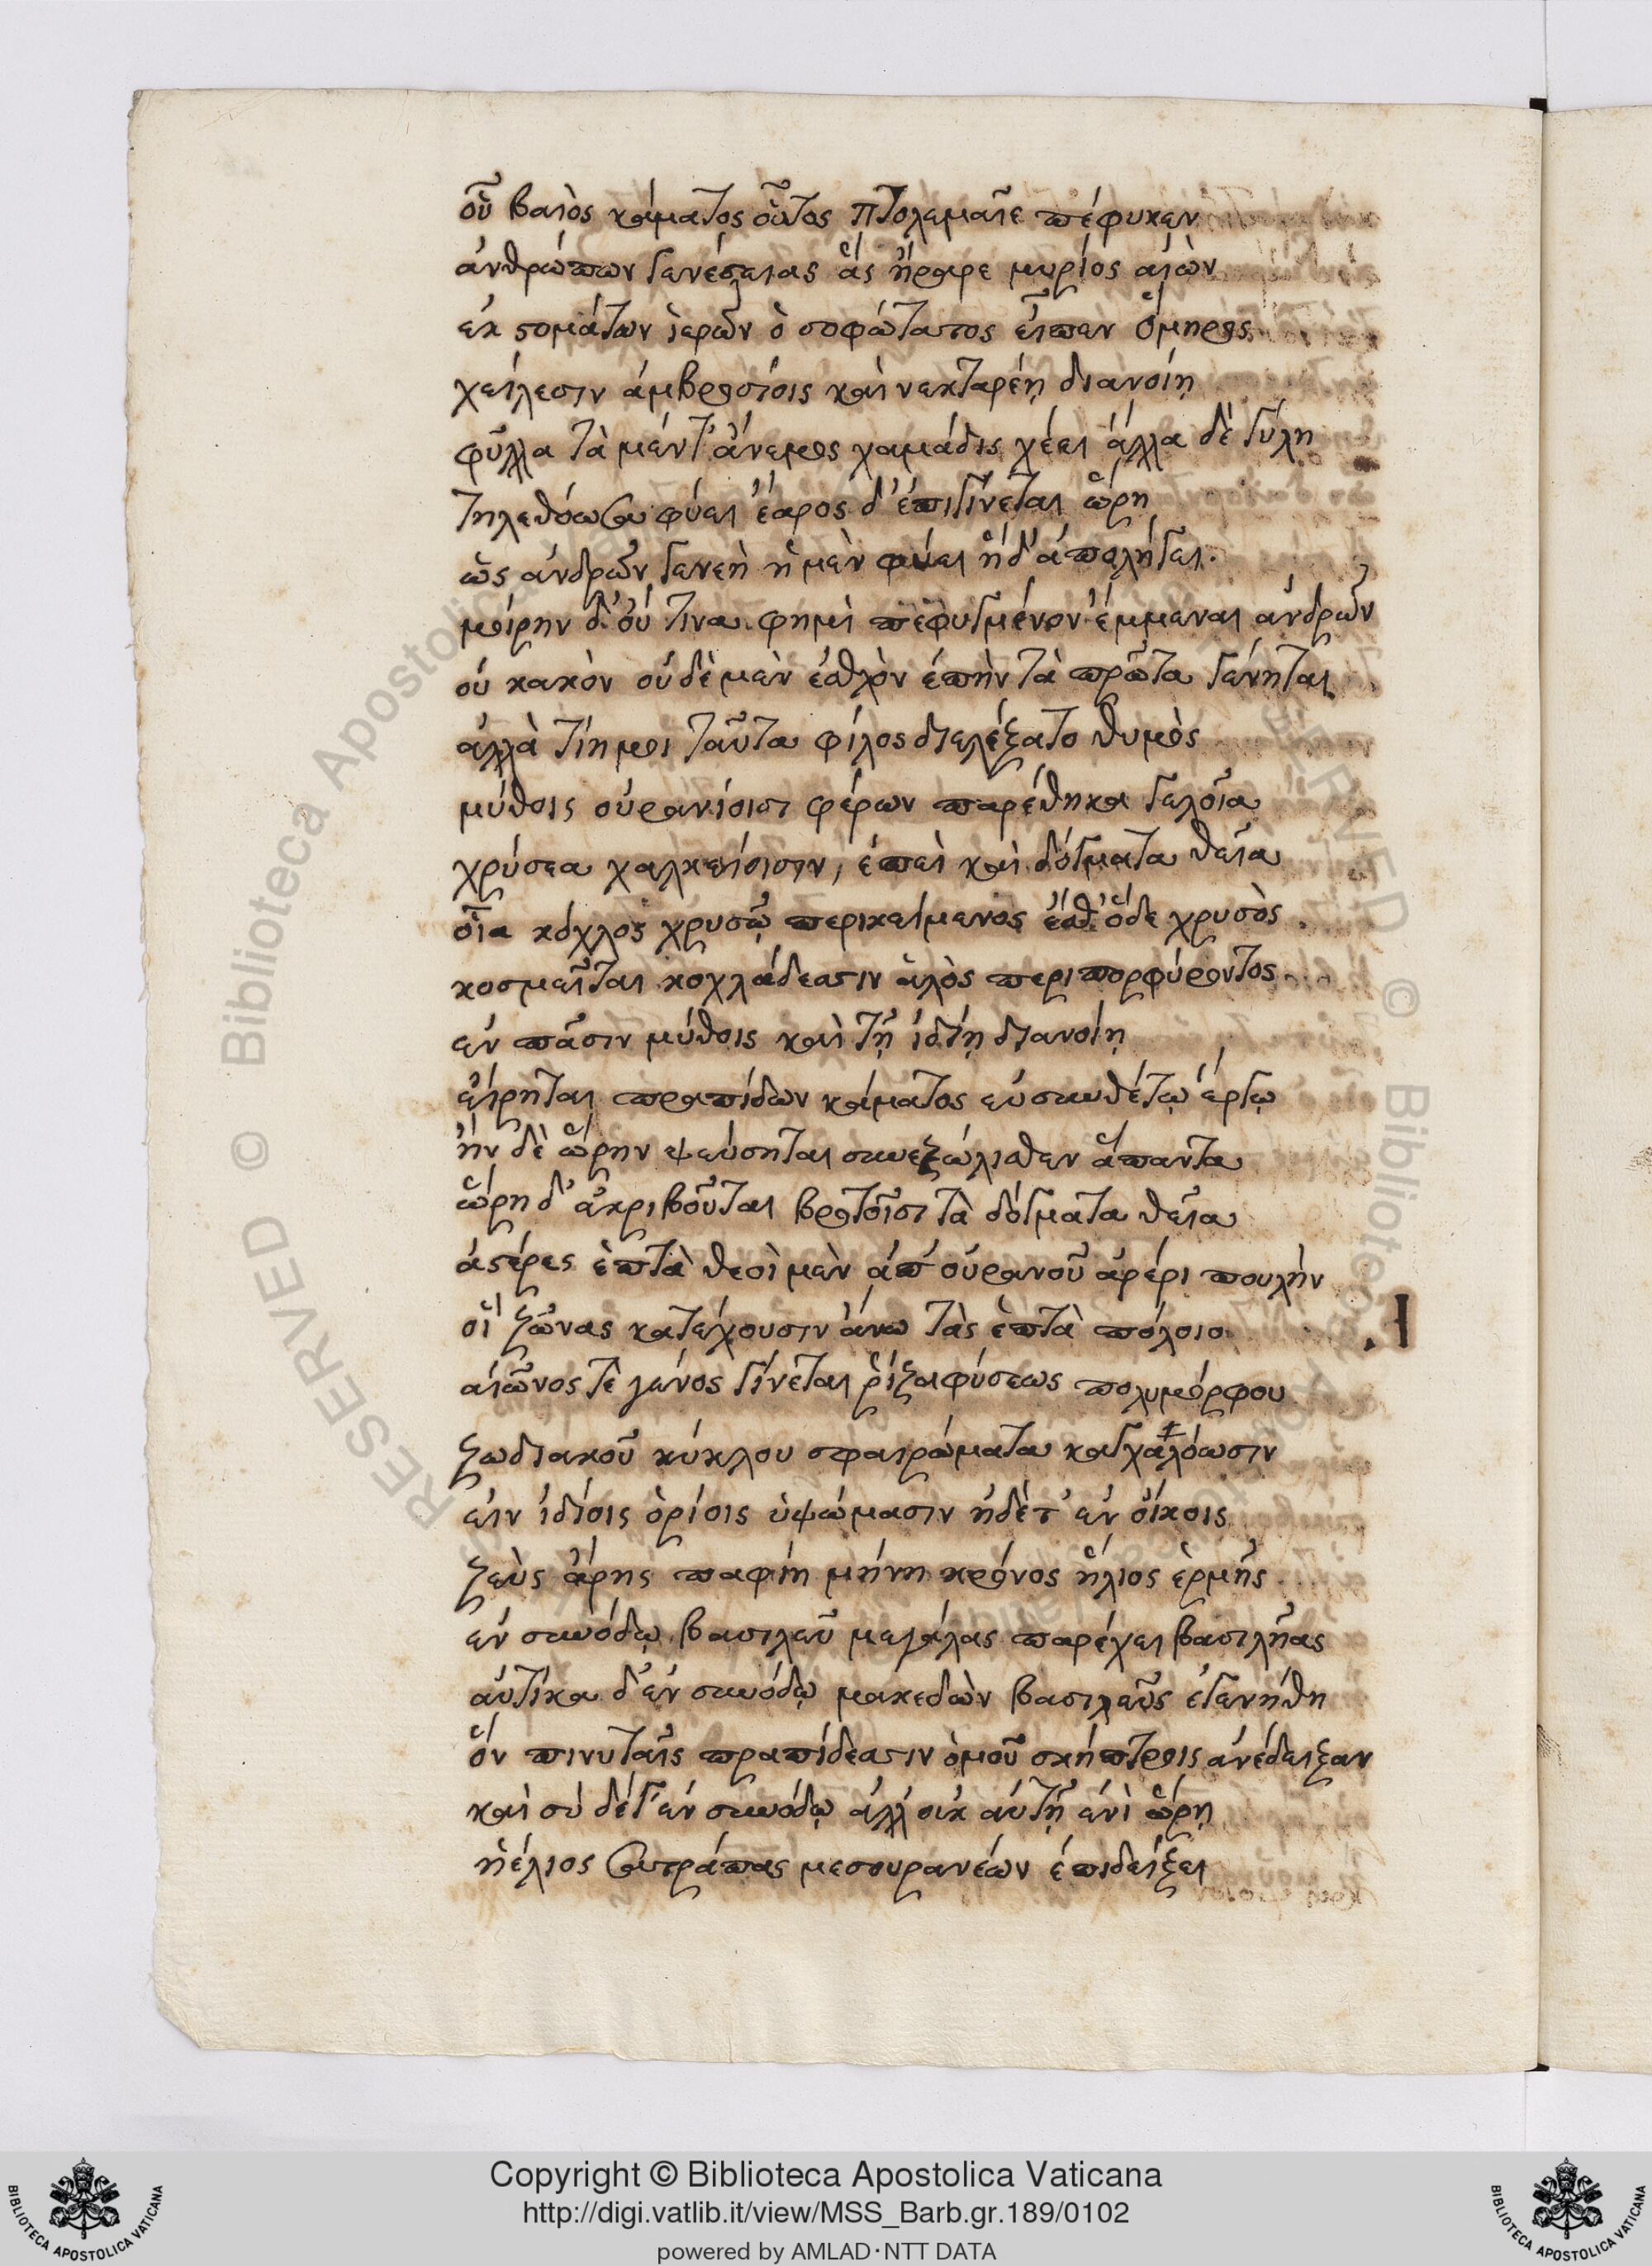 οὗ βαιὸς κάματος οὗτος πτολεμαῖε πέφυκεν
ἀνθρώπων γενέσειας ἃς ἤραρε μυρίος αἰὼν
ἐκ στομάτων ἱερῶν ὁ σοφώτατος εἶπεν ὅμηρος
χείλεσιν ἀμβροσίοις καὶ νεκταρέῃ διανοίῃ
φύλλα τὰ μέντ' ἄνεμος χαμάδις χέει ἄλλα δὲ γύλη
τηλεθόωσα φύει ἔαρος δ' ἐπιγίνεται ὥρη
ὣς ἀνδρῶν γενεὴ ἡ μὲν φύει ἡ δ' ἀπολήγει.
μοίρην δ' οὔ τινα φημὶ πεφυγμένον ἔμμεναι ἀνδρῶν
οὐ κακὸν οὐδὲ μὲν ἐσθλὸν ἐπὴν τὰ πρῶτα γένηται
ἀλλὰ τίη μοι ταῦτα φίλος διελέξατο θυμὸς
μύθοις οὐρανίοισι φέρων παρέθηκα γελοῖα
χρύσεα χαλκείοισιν, ἐπεὶ καὶ δόγματα θεῖα
οἷα κόχλος χρυσῷ περικείμενος ἔσθ' ὅδε χρυσὸς
κοσμεῖται κοχλάδεσσιν ἁλὸς περιπορφύροντος
ἐν πᾶσιν μύθοις καὶ τῇ ἰδίῃ διανοίῃ
εἴρηται πραπίδων κάματος εὐσυνθέτῳ ἔργῳ
ἢν δὲ ὥρην ψεύσηται συνεξώλισθεν ἅπαντα
ὥρη δ' ἀκριβοῦται βροτοῖσι τὰ δόγματα θεῖα
ἀστέρες ἑπτὰ θεοὶ μὲν ἀπ' οὐρανοῦ ἀρέρι πουλὴν
οἳ ζώνας κατέχουσιν ἄνω τὰς ἑπτὰ πόλοιο
αἰῶνος τὲ γένος γίνεται ῥίζα φύσεως πολυμόρφου
ζωδιακοῦ κύκλου σφαιρώματα καγχαλόωσιν
εἰν ἰδίοις ὁρίοις ὑψώμασιν ἠδέτ' ἐν οἴκοις
ζεὺς ἄρης παφίη μήνη κρόνος ἥλιος ἑρμῆς
ἐν συνόδῳ βασιλεῦ μεγάλας παρέχει βασιλῆας
αὐτίκα δ' ἐν συνόδῳ μακεδὼν βασιλεῦς ἐγενήθη
ὃν πινυταῖς πραπίδεσσιν ὁμοῦ σκήπτροις ἀνέδειξαν
καὶ σὺ δέ γ' ἐν συνόδῳ ἀλλ' οὐκ αὐτῇ ἐνὶ ὥρῃ
ἠέλιος σατράπας μεσουρανέων ἐπιδείξει
RESERVED © Biblioteca Apostolica Vaticana
Copyright © Biblioteca Apostolica Vaticana
http://digi.vatlib.it/view/MSS_Barb.gr.189/0102
powered by AMLAD·NTT DATA
BIBLIOTECA APOSTOLICA VATICANA
BIBLIOTECA APOSTOLICA VATICANA